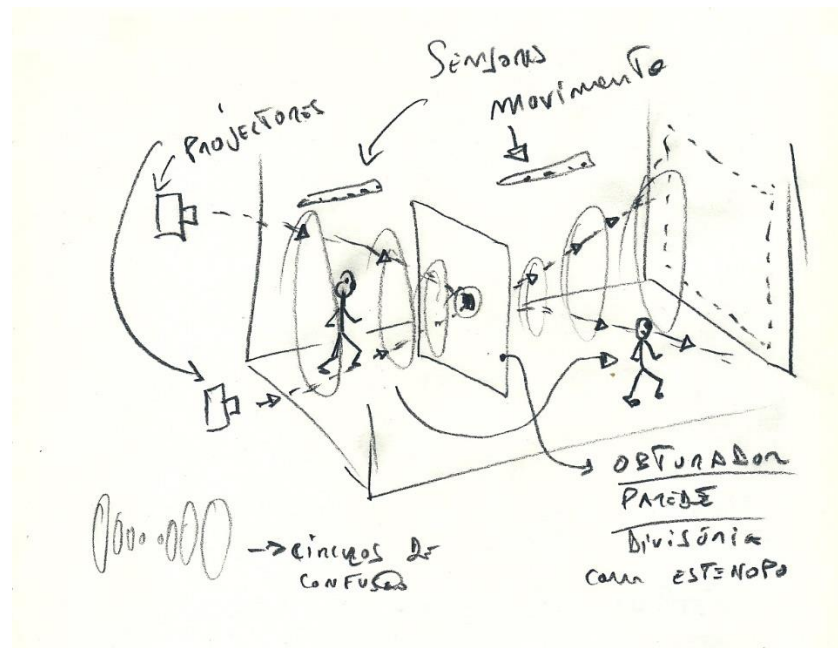 SENSORES
MOVIMENTO
PROJECTORES
OBTURADOR
PAREDE
DIVISÓRIA
COM ESTENOPO
CÍRCULOS DE
CONFUSÃO